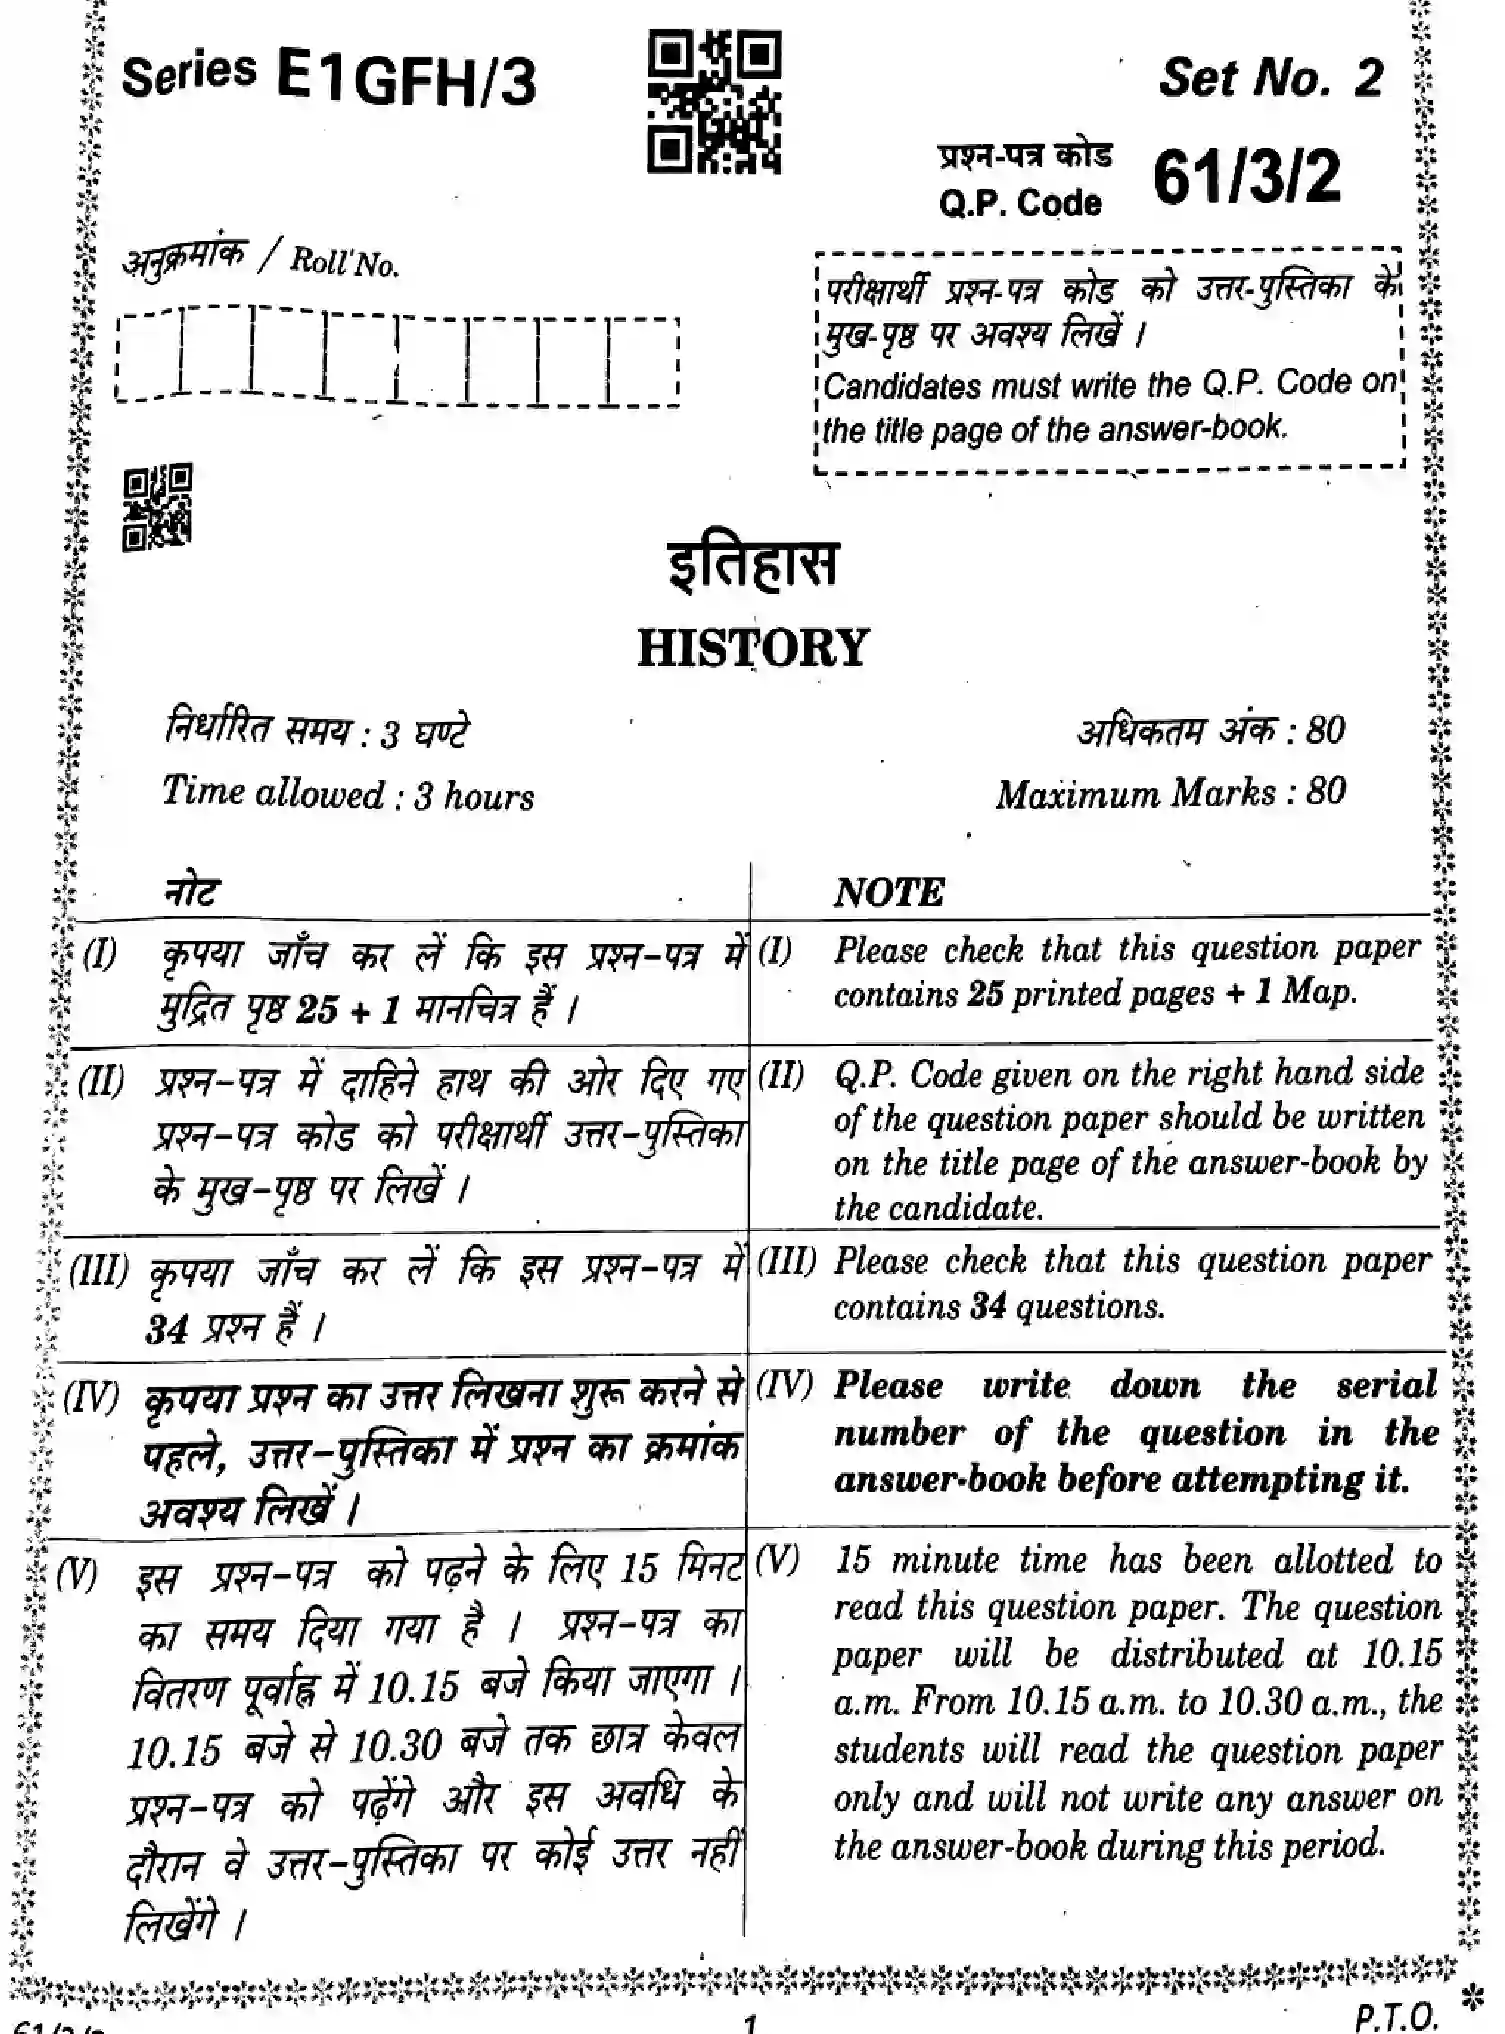 Series E1GFH/3
Set No. 2
प्रश्न-पत्र कोड
Q.P. Code 61/3/2
अनुक्रमांक / Roll No.
परीक्षार्थी प्रश्न-पत्र कोड को उत्तर-पुस्तिका के
मुख-पृष्ठ पर अवश्य लिखें ।
Candidates must write the Q.P. Code on
the title page of the answer-book.
इतिहास
HISTORY
निर्धारित समय : 3 घण्टे
अधिकतम अंक : 80
Time allowed : 3 hours
Maximum Marks : 80
नोट
(I) कृपया जाँच कर लें कि इस प्रश्न-पत्र में
मुद्रित पृष्ठ 25 + 1 मानचित्र हैं ।
(II) प्रश्न-पत्र में दाहिने हाथ की ओर दिए गए
प्रश्न-पत्र कोड को परीक्षार्थी उत्तर-पुस्तिका
के मुख-पृष्ठ पर लिखें ।
(III) कृपया जाँच कर लें कि इस प्रश्न-पत्र में
34 प्रश्न हैं ।
(IV) कृपया प्रश्न का उत्तर लिखना शुरू करने से
पहले, उत्तर-पुस्तिका में प्रश्न का क्रमांक
अवश्य लिखें ।
(V) इस प्रश्न-पत्र को पढ़ने के लिए 15 मिनट
का समय दिया गया है । प्रश्न-पत्र का
वितरण पूर्वाह्न में 10.15 बजे किया जाएगा ।
10.15 बजे से 10.30 बजे तक छात्र केवल
प्रश्न-पत्र को पढ़ेंगे और इस अवधि के
दौरान वे उत्तर-पुस्तिका पर कोई उत्तर नहीं
लिखेंगे ।
NOTE
(I) Please check that this question paper
contains 25 printed pages + 1 Map.
(II) Q.P. Code given on the right hand side
of the question paper should be written
on the title page of the answer-book by
the candidate.
(III) Please check that this question paper
contains 34 questions.
(IV) Please write down the serial
number of the question in the
answer-book before attempting it.
(V) 15 minute time has been allotted to
read this question paper. The question
paper will be distributed at 10.15
a.m. From 10.15 a.m. to 10.30 a.m., the
students will read the question paper
only and will not write any answer on
the answer-book during this period.
1
P.T.O.